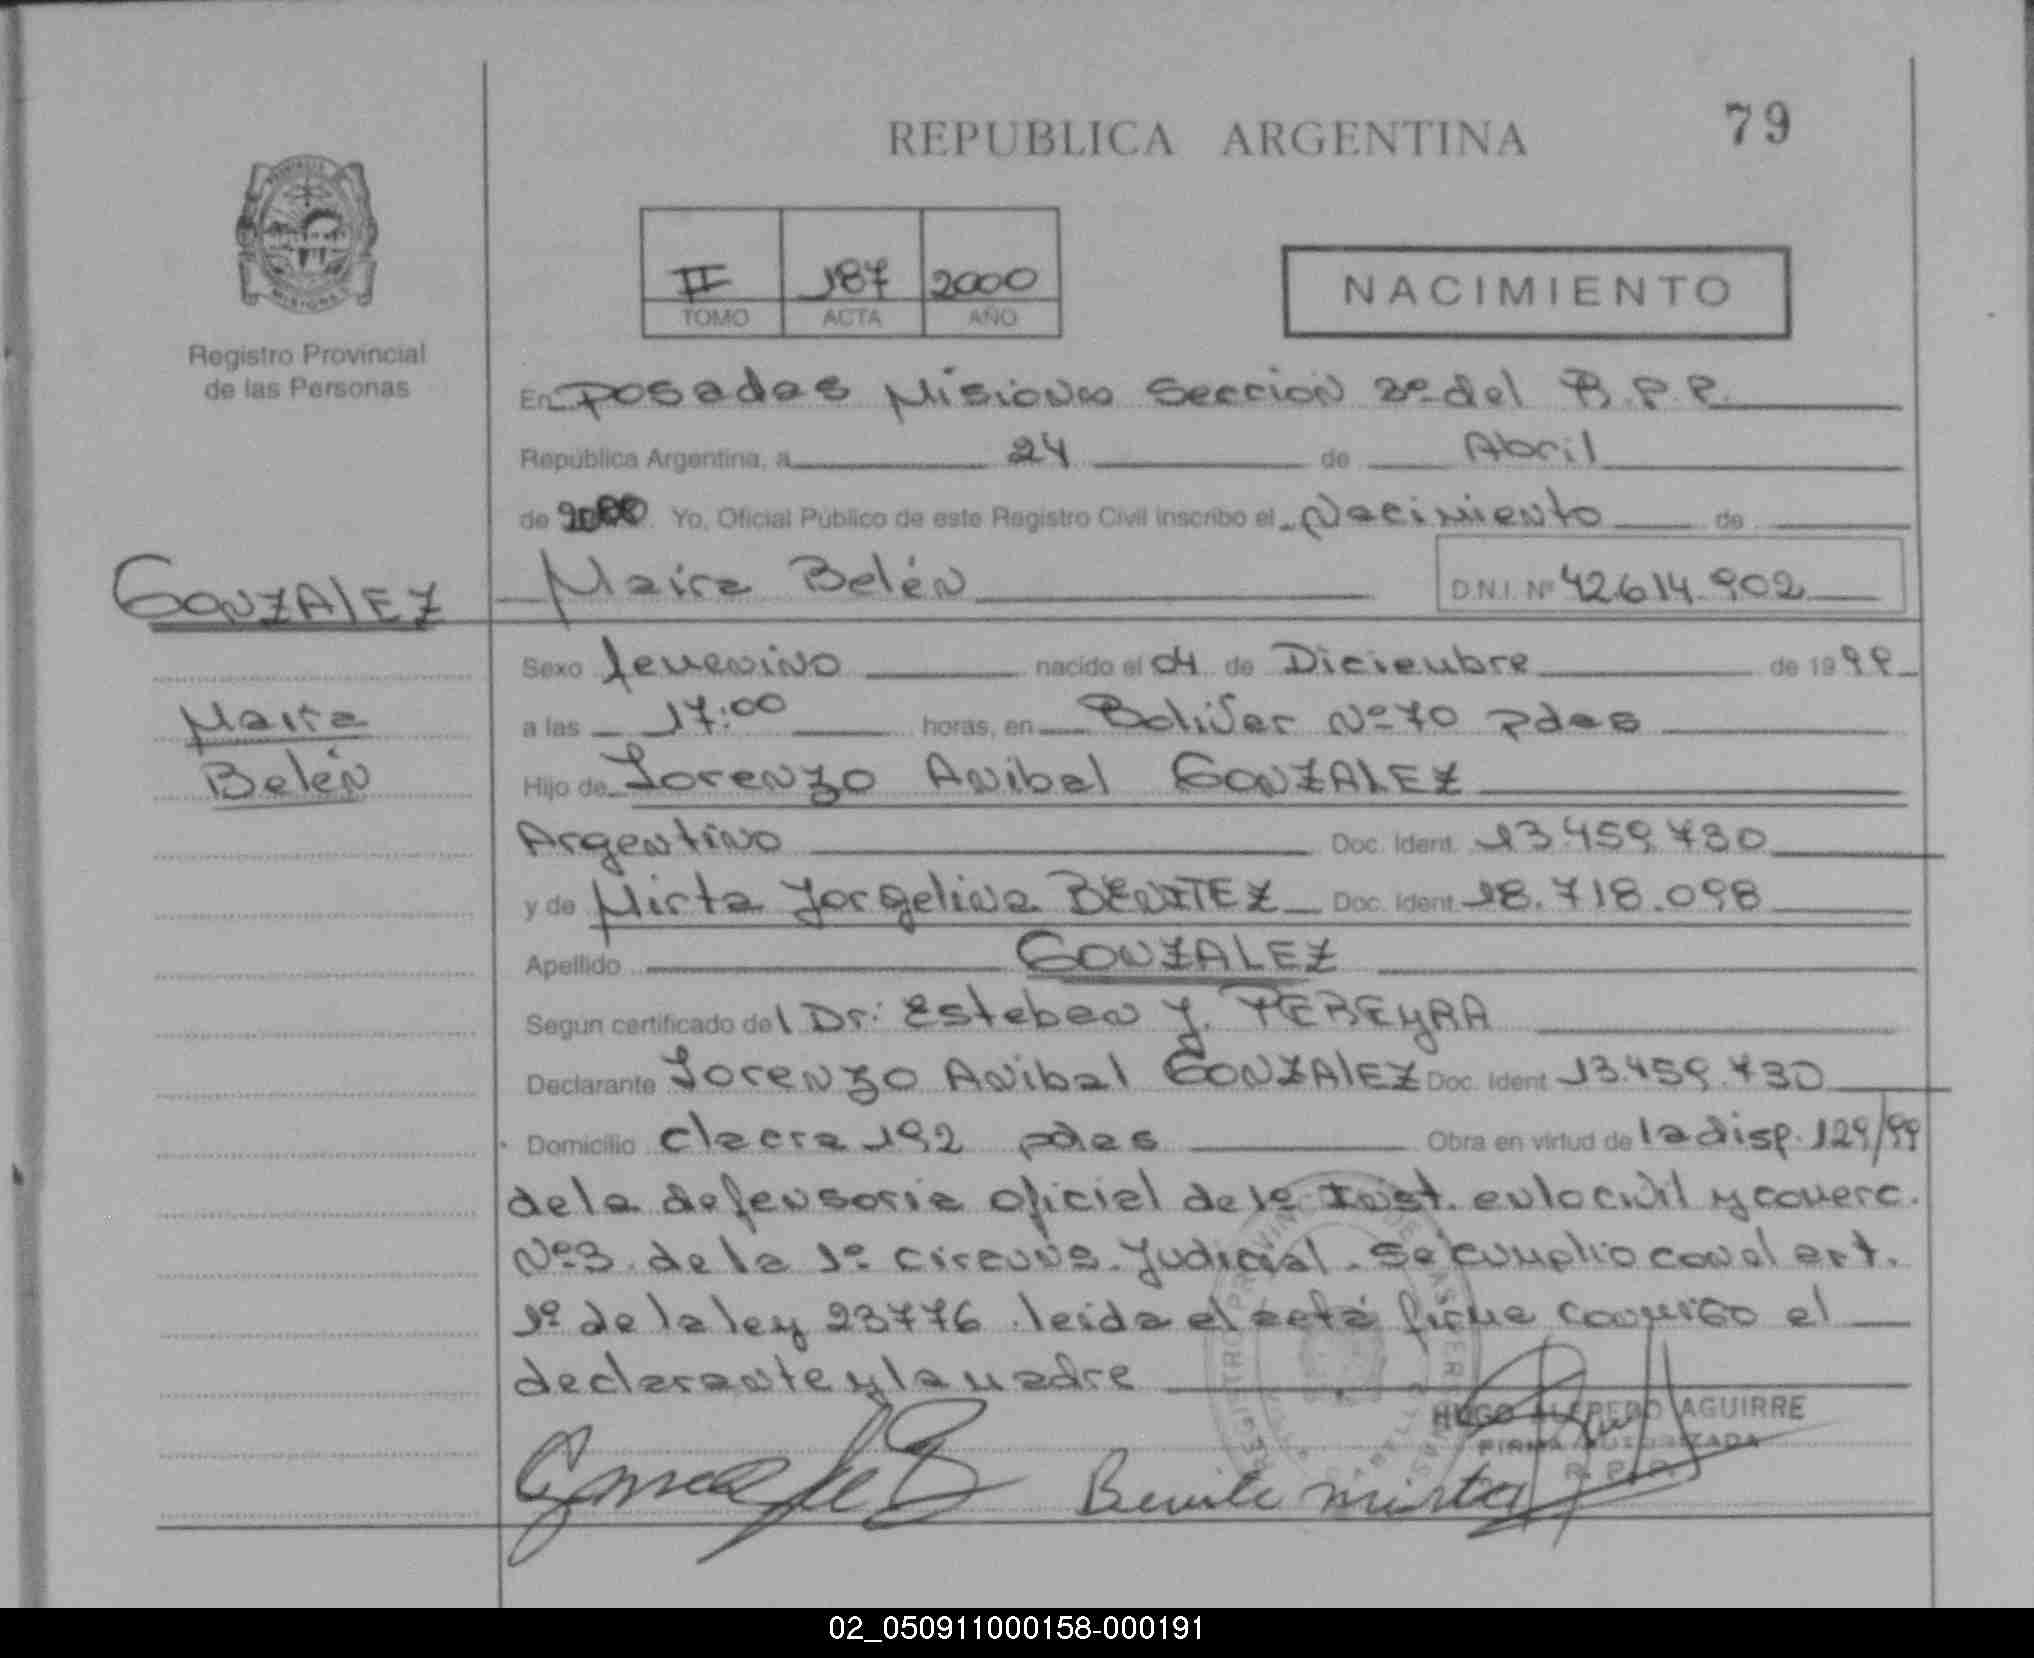 REPUBLICA ARGENTINA
79
II 187 2000
TOMO ACTA AÑO
NACIMIENTO
Registro Provincial
de las Personas
En Posadas Misiones Sección 2º del R.P.P.
República Argentina, a 24 de Abril
de 2000 Yo, Oficial Público de este Registro Civil inscribo el Nacimiento de
GONZALEZ Maira Belén D.N.I. Nº 42.614.902
Sexo femenino nacido el 04 de Diciembre de 1999
Maira
a las 17:00 horas, en Bolívar Nº 70 pdas
Belén
Hijo de Lorenzo Anibal GONZALEZ
Argentino Doc. Ident. 13.459.730
y de Mirta Jorgelina BENITEZ Doc. Ident. 18.718.098
Apellido GONZALEZ
Segun certificado del Dr: Esteban J. PEREYRA
Declarante Lorenzo Anibal GONZALEZ Doc. Ident 13.459.730
Domicilio chacra 192 pdas Obra en virtud de la disp. 129/99
de la defensoria oficial de 1º Inst. en lo civil y comerc.
Nº 3 de la 1º circuns. Judicial. Se cumplio con el art.
1º de la ley 23776 leida el acta firma conmigo el
declarante y la madre
HUGO ALFREDO AGUIRRE
FIRMA AUTORIZADA
R.P.P.
Benite mirta
02_050911000158-000191